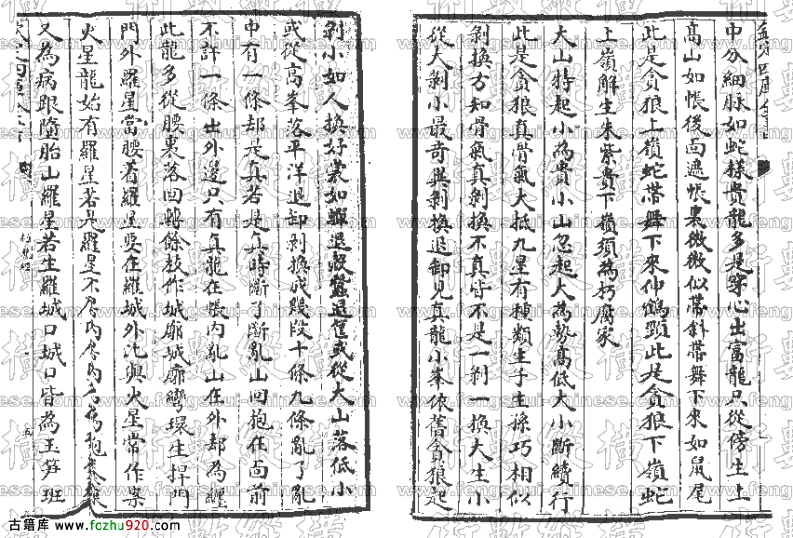 中分細脉如蛇樣貴龍多是穿心出富龍只從傍生上
高山如帳後面遮帳裏微微似帶斜帶舞下來如鼠尾
此是貪狼上嶺蛇帶舞下來伸鶴頸此是貪狼下嶺蛇
上嶺解生朱紫貴下嶺須為朽腐家
大山特起小為貴小山忽起大為勢高低大小斷續行
此是貪狼真骨氣大抵九星有種類生子生孫巧相似
剝換方知骨氣真剝換不真皆不是一剝一換大生小
從大剝小最奇異剝換退卸見真龍小峯依舊貪狼起
剝小如人換好裳如蟬退殼蠶退筐或從大山落低小
或從高峯落平洋退卸剝換成幾段十條九條亂了亂
中有一條却是真若是真時斷了斷亂山回抱在面前
不許一條出外邊只有真龍在帳內亂山在外却為纏
此龍多從腰裏落回轉餘枝作城廓城廓彎環生捍門
門外羅星當腰着羅星要在羅城外此與火星常作案
火星龍始有羅星若是羅星不居內居內名為抱養瘝
又為病眼墮胎山羅星若生羅城口城口皆為玉笋班
古籍库 www.fozhu920.com